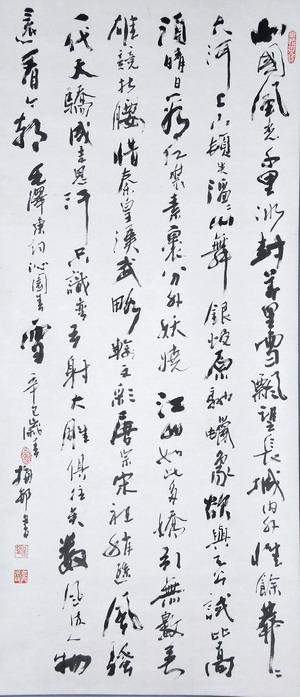 北國風光千里冰封萬里雪飄望長城內外惟餘莽々
大河上下頓失滔々山舞銀蛇原馳蠟象欲與天公試比高
須晴日看紅裝素裹分外妖嬈江山如此多嬌引無數英
雄競折腰惜秦皇漢武略輸文彩唐宗宋祖稍遜風騷
一代天驕成吉思汗只識彎弓射大雕俱往矣數風流人物
還看今朝 毛澤東詞沁園春雪 辛巳歲